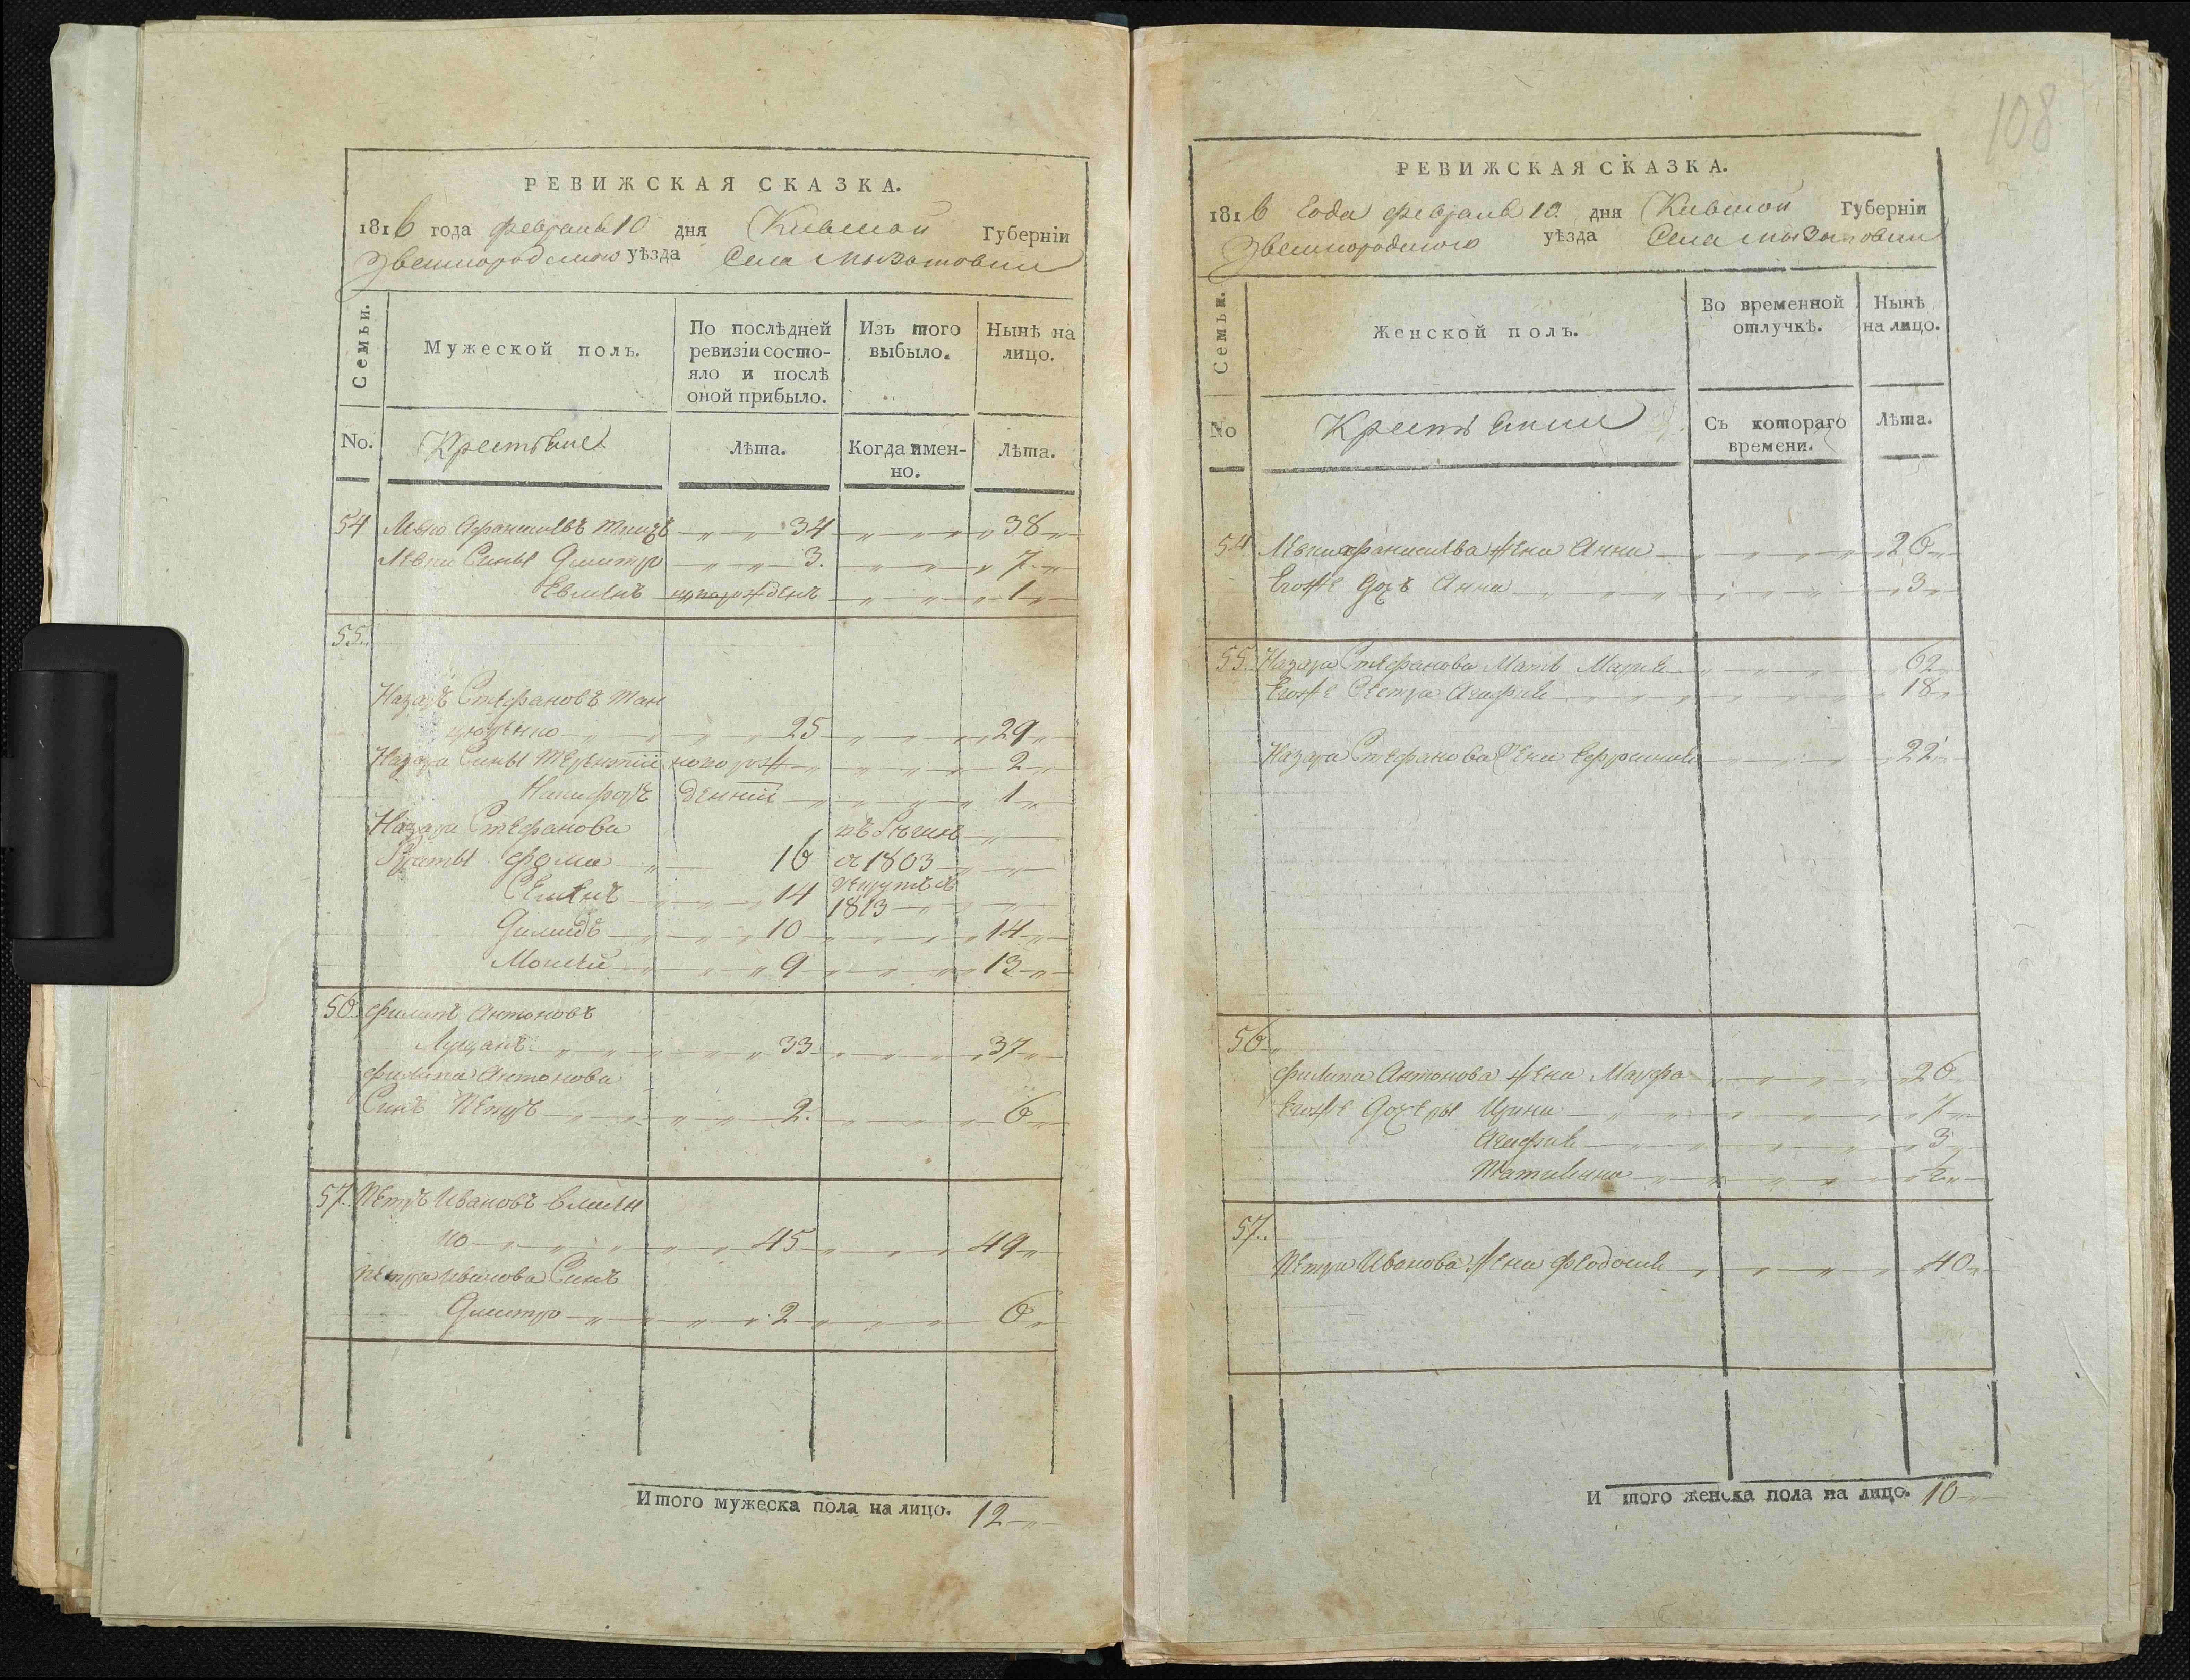 РЕВИЖСКАЯ СКАЗКА.
1816 года февраля 10 дня Киевской Губерніи
Звенигородского уѣзда Села
Семьи.
Мужеской полъ.
По послѣдней ревизіи состояло и послѣ оной прибыло.
Изъ того выбыло.
Нынѣ на лицо.
No.
Крестьяне
Лѣта.
Когда именно.
Лѣта.
54 Афанасиевъ 34 38
Сины Дмитро 3. 7
новорожденъ 1
55.
Назаръ Стефановъ
25 29
Назара Сины Терентий новорож 2
Никифоръ денний 1
Назара Стефанова
Браты фома 16 1803
Семенъ 14 рекрутъ
1813
Демидъ 10 14
Моисей 9 13
56. Филипъ Антоновъ
33 37
Филипа Антонова
Синъ Петръ 2. 6
57. Петръ Ивановъ
ко 45 49
Петра Иванова Синъ
Дмитро 2 6
Итого мужеска пола на лицо. 12
108
РЕВИЖСКАЯ СКАЗКА.
1816 Года февраля 10. дня Киевской Губерніи
Звенигородского уѣзда Села
Семьи.
Женской полъ.
Во временной отлучкѣ.
Нынѣ на лицо.
No
Съ котораго времени.
Лѣта.
54. Афанасиева жена Анна 26
Егожъ Дочъ Анна 3
55. Назара Стефанова Мать Мария 62
Егоже Сестра Агафия 18
Назара Стефанова Жена Ефросиния 22
56.
Филипа Антонова жена Марфа 26
Егоже Дочеры Ирина 7
Агафия 3
Татиянна ½
57.
Петра Иванова жена Феодосия 40
Итого женска пола на лицо. 10